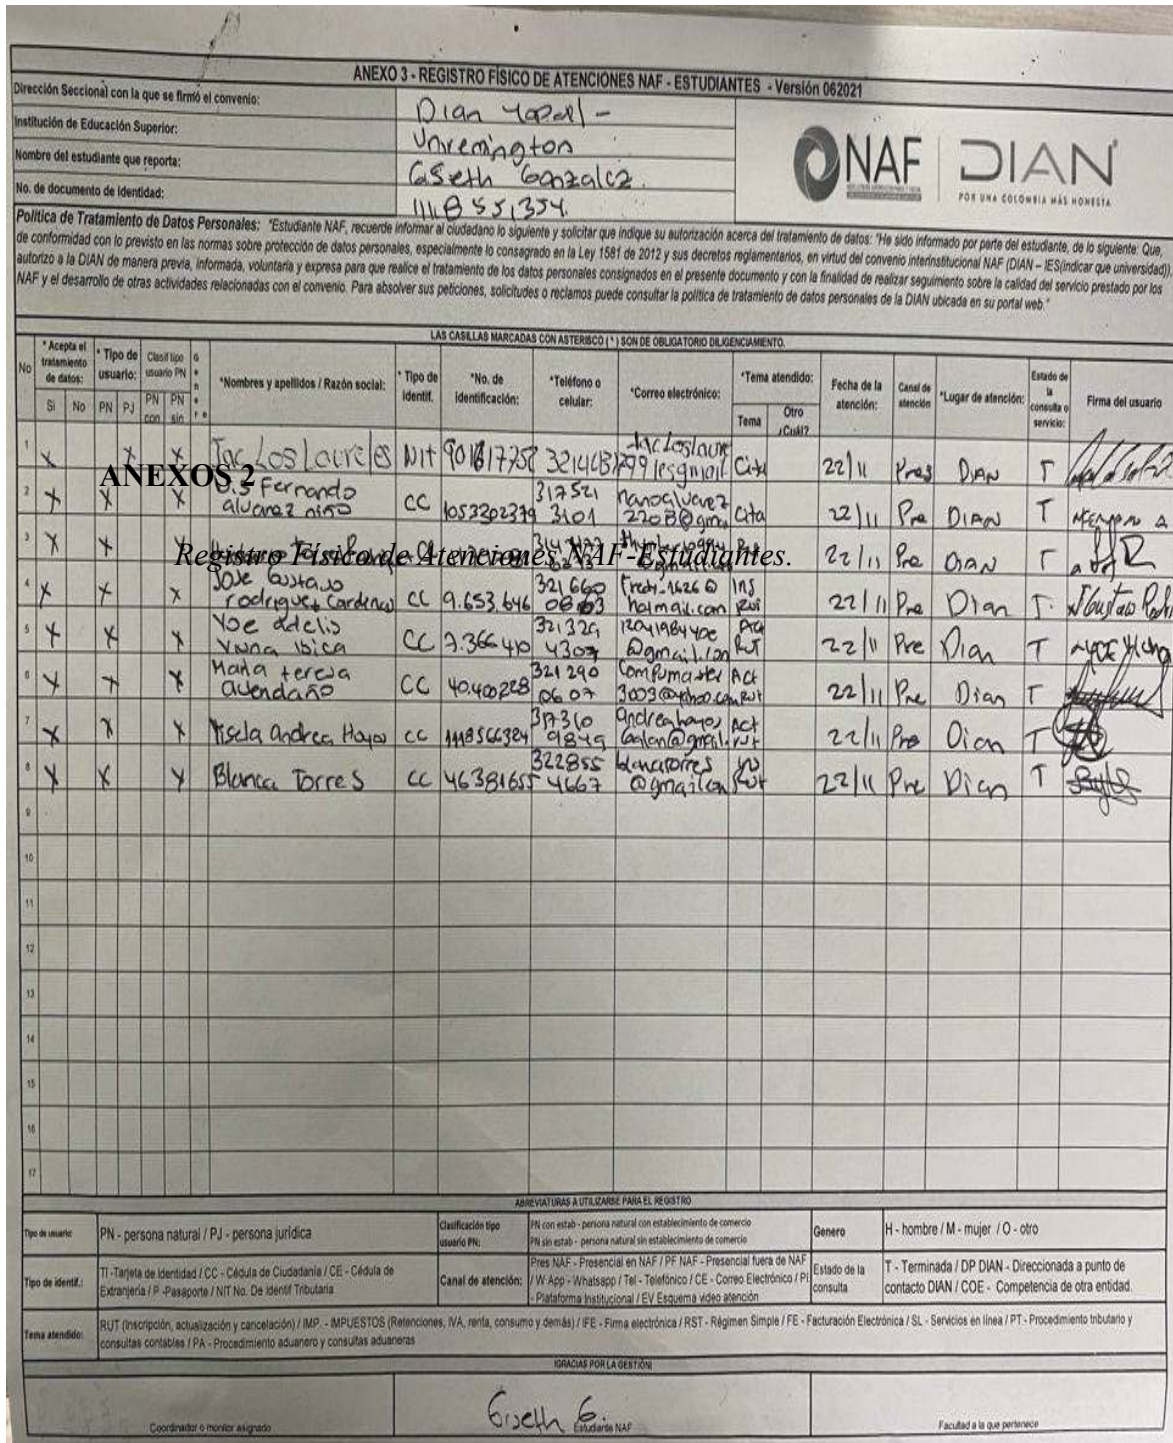 ANEXO 3 - REGISTRO FÍSICO DE ATENCIONES NAF - ESTUDIANTES - Versión 062021
Dirección Seccional con la que se firmó el convenio: Dian Yopal -
Institución de Educación Superior: Uniremington
Nombre del estudiante que reporta: Giseth Gonzalez.
No. de documento de Identidad: 1118551,354.
NAF DIAN
POR UNA COLOMBIA MÁS HONESTA
Política de Tratamiento de Datos Personales: "Estudiante NAF, recuerde informar al ciudadano lo siguiente y solicitar que indique su autorización acerca del tratamiento de datos: "He sido informado por parte del estudiante, de lo siguiente: Que,
de conformidad con lo previsto en las normas sobre protección de datos personales, especialmente lo consagrado en la Ley 1581 de 2012 y sus decretos reglamentarios, en virtud del convenio interinstitucional NAF (DIAN – IES(indicar que universidad)),
autorizo a la DIAN de manera previa, informada, voluntaria y expresa para que realice el tratamiento de los datos personales consignados en el presente documento y con la finalidad de realizar seguimiento sobre la calidad del servicio prestado por los
NAF y el desarrollo de otras actividades relacionadas con el convenio. Para absolver sus peticiones, solicitudes o reclamos puede consultar la política de tratamiento de datos personales de la DIAN ubicada en su portal web."
LAS CASILLAS MARCADAS CON ASTERISCO (*) SON DE OBLIGATORIO DILIGENCIAMIENTO.
No * Acepta el tratamiento de datos: * Tipo de usuario: Clasif tipo usuario PN Genero *Nombres y apellidos / Razón social: * Tipo de Identif. *No. de identificación: *Teléfono o celular: *Correo electrónico: *Tema atendido: Fecha de la atención: Canal de atención *Lugar de atención: Estado de la consulta o servicio: Firma del usuario
Si No PN PJ PN con PN sin Tema Otro ¿Cuál?
1 X X X Jac Los Laureles NIT Cita 22/11 Pres DIAN T
ANEXOS 2
2 X X X Fernando alvarez niño CC 1053202379 317521 3101 Cita 22/11 Pre DIAN T
Registro Físico de Atenciones NAF-Estudiantes.
3 X X 22/11 Pre DIAN T
4 X X X Jose Gustavo rodriguez Cardenas CC 9.653.646 321660 hotmail.com Ins Rut 22/11 Pre Dian T.
5 X X X Yoe adelio CC 7.366.410 321329 4307 @gmail.com Act Rut 22/11 Pre Dian T
6 X X X Maria teresa avendaño CC 40.400228 321290 0607 Compumaster 3003@yahoo.com Act Rut 22/11 Pre Dian T
7 X X X Yisela Andrea Hoyos CC 1118566324 317310 9849 andreahoyos @gmail. Act rut 22/11 Pre Dian T
8 X X X Blanca Torres CC 46381655 322855 4667 @gmailcom Rut 22/11 Pre Dian T
9
10
11
12
13
14
15
16
17
ABREVIATURAS A UTILIZARSE PARA EL REGISTRO
Tipo de usuario: PN - persona natural / PJ - persona jurídica
Clasificación tipo usuario PN: PN con estab - persona natural con establecimiento de comercio
PN sin estab - persona natural sin establecimiento de comercio
Genero H - hombre / M - mujer / O - otro
Tipo de identif.: TI -Tarjeta de Identidad / CC - Cédula de Ciudadanía / CE - Cédula de
Extranjería / P -Pasaporte / NIT No. De Identif Tributaria
Canal de atención: Pres NAF - Presencial en NAF / PF NAF - Presencial fuera de NAF
/ W App - Whatsapp / Tel - Telefónico / CE - Correo Electrónico / PI
- Plataforma Institucional / EV Esquema video atención
Estado de la consulta T - Terminada / DP DIAN - Direccionada a punto de
contacto DIAN / COE - Competencia de otra entidad.
Tema atendido: RUT (Inscripción, actualización y cancelación) / IMP. - IMPUESTOS (Retenciones, IVA, renta, consumo y demás) / IFE - Firma electrónica / RST - Régimen Simple / FE - Facturación Electrónica / SL - Servicios en línea / PT - Procedimiento tributario y
consultas contables / PA - Procedimiento aduanero y consultas aduaneras
¡GRACIAS POR LA GESTIÓN!
Giseth G.
Coordinador o monitor asignado Estudiante NAF Facultad a la que pertenece